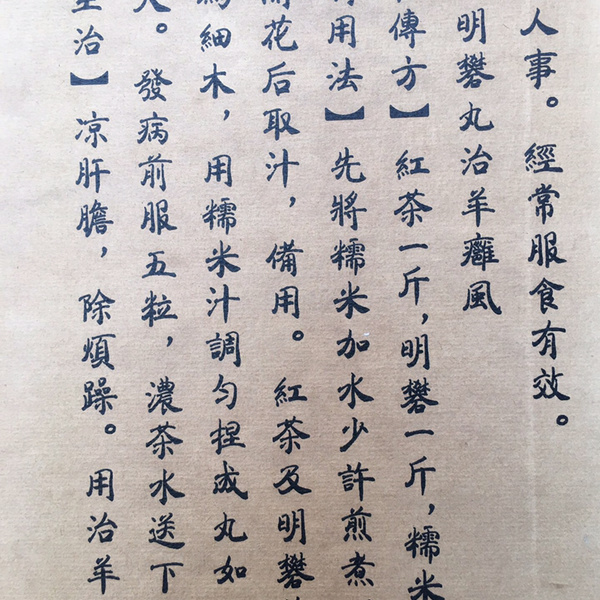 人事。經常服食有效。
明礬丸治羊癰風
傳方】紅茶一斤，明礬一斤，糯米
用法】先將糯米加水少許煎煮
花后取汁，備用。紅茶及明礬
細木，用糯米汁調勻捏成丸如
。發病前服五粒，濃茶水送下
治】凉肝膽，除煩躁。用治羊